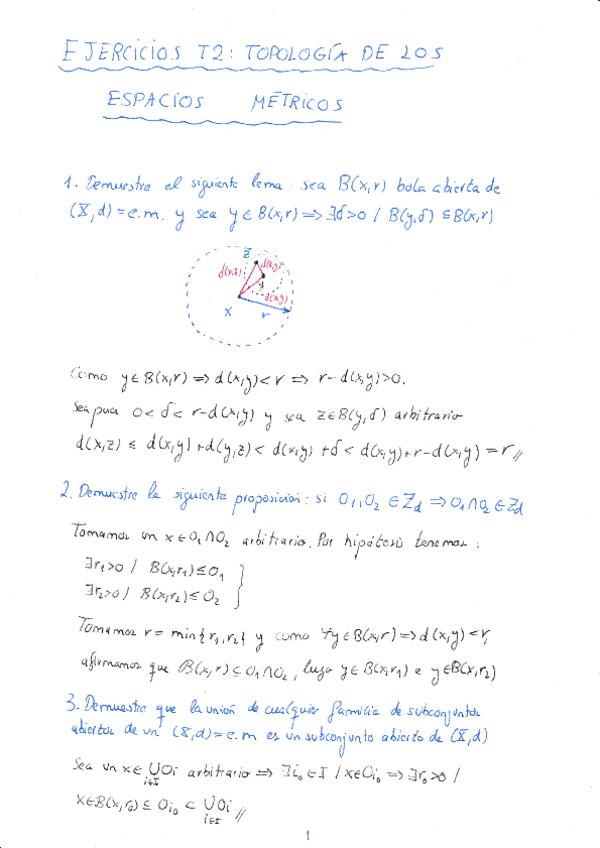 EJERCICIOS T2: TOPOLOGÍA DE LOS
ESPACIOS MÉTRICOS
1. Demuestre el siguiente lema: sea B(x,r) bola abierta de
(X,d)=e.m. y sea y∈B(x,r) ⇒ ∃δ>0 / B(y,δ)⊆B(x,r)
z
d(x,z)
d(z,y)
y
d(x,y)
x
r
Como y∈B(x,r) ⇒ d(x,y)<r ⇒ r-d(x,y)>0.
Sea pues 0<δ<r-d(x,y) y sea z∈B(y,δ) arbitrario
d(x,z) ≤ d(x,y)+d(y,z) < d(x,y)+δ < d(x,y)+r-d(x,y)=r //
2. Demuestre la siguiente proposición: si O₁,O₂ ∈ Zd ⇒ O₁∩O₂ ∈ Zd
Tomamos un x∈O₁∩O₂ arbitrario. Por hipótesis tenemos:
∃r₁>0 / B(x,r₁)⊆O₁
∃r₂>0 / B(x,r₂)⊆O₂
Tomamos r = min{r₁,r₂} y como ∀y∈B(x,r) ⇒ d(x,y)<r,
afirmamos que B(x,r)⊆O₁∩O₂, luego y∈B(x,r₁) e y∈B(x,r₂)
3. Demuestre que la unión de cualquier familia de subconjuntos
abiertos de un (X,d)=e.m es un subconjunto abierto de (X,d)
Sea un x∈ ∪Oi i∈I arbitrario ⇒ ∃i₀∈I / x∈Oi₀ ⇒ ∃r₀>0 /
x∈B(x,r₀) ⊆ Oi₀ ⊂ ∪Oi i∈I //
1